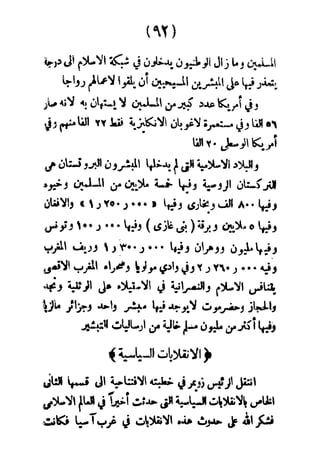 (٩٢)
المسلمين وما زال الوطنيون يدخلون في شبكة الاسلام الى درجة
يتعذر فيها على المبشرين المسيحيين أن يلقوا لاعمالهم رواجا
وفي أمريكا عدد كبير من المسلمين لا يستهان به لانه صار
٥٦ الفا وفي مستعمرة لاغويان الانكليزية فقط ٢٢ الفا منهم وفي
أمريكا الوسطى ٢٠ الفا
والبلاد الاسلامية التي لم يدخلها المبشرون البروتستان هي
التركستان الروسية وفيها خمسة ملايين من المسلمين وخيوه
وفيها ٨٠٠ الف وبخارى وفيها « ٢٥٠ر٠٠٠ر١ » والافغان
وفيها ٥ ملايين وبرقة ( بني غازى ) وفيها ١٥٠ر٠٠٠ وتونس
وفيها مليون ووهران وفيها ١ر٣٠٠ر٠٠٠ وريف المغرب
وفيه ٠٠٠ر٢٦٠ر٢ وفي وادي مولويا وصحراء المغرب الاقصى
يتنافس الاسلام والنصرانية في الاستيلاء على الوثنية ونجد
والحجاز وحضرموت لا يوجد فيها مبشر واحد وجزائر مالزيا
وفيها أكثر من مليون مسلم خالية من ارساليات التبشير
﴿ الانقلابات السياسية ﴾
انتقل الرئيس زويمر في خطبته الافتتاحية الى قسمها الثاني
الخاص بالانقلابات السياسية التي حدثت أخيراً في العالم الاسلامي
فشكر الله على حدوث هذه الانقلابات في غرب آسيا فكانت